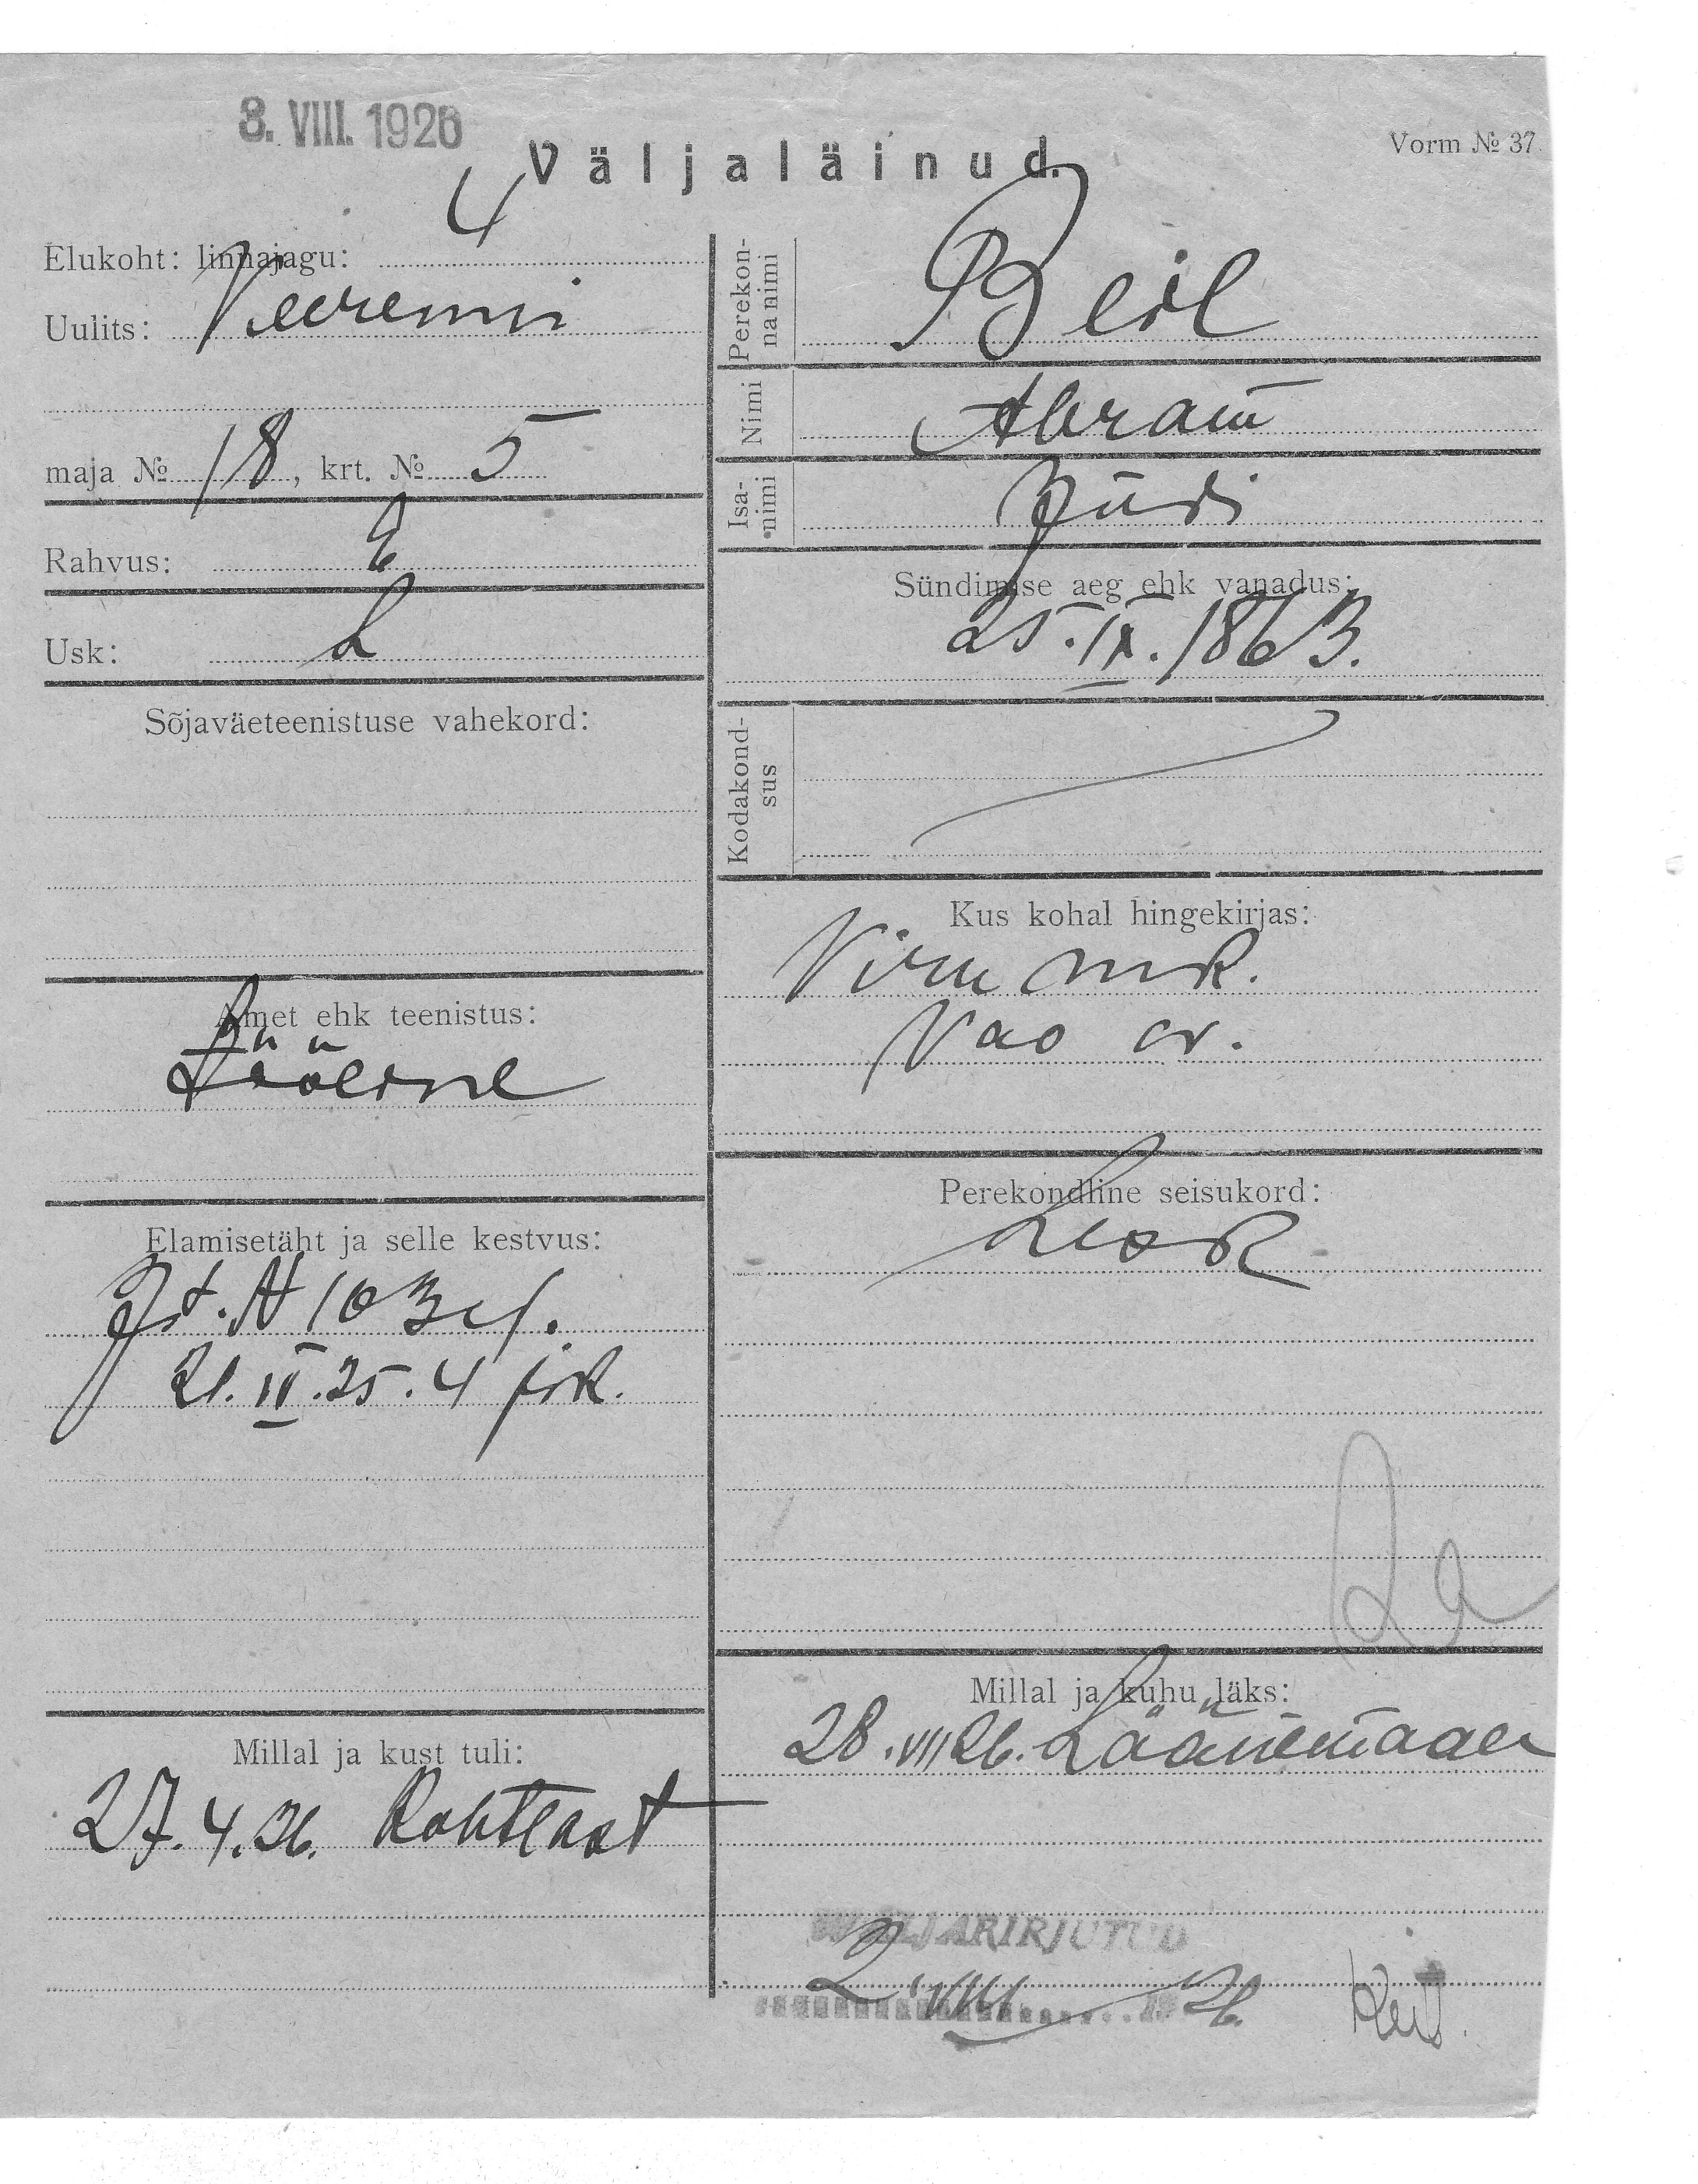 8. VIII. 1926
Väljaläinud.
Vorm № 37.
Elukoht: linnajagu: 4
Uulits: Veerenni
maja № 18, krt. № 5
Rahvus: E
Usk: L
Sõjaväeteenistuse vahekord:
Amet ehk teenistus:
Tööline
Elamisetäht ja selle kestvus:
21. IV. 25. 4 jsk.
Millal ja kust tuli:
27. 4. 26. Kohtlast
Perekonna nimi
Beil
Nimi
Abram
Isanimi
Jüri
Sündimise aeg ehk vanadus:
25. IX. 1863.
Kodakondsus
Kus kohal hingekirjas:
Viru mk.
Vao v.
Perekondline seisukord:
Lesk
Millal ja kuhu läks:
28. VII 26. Läänemaale
VÄLJAKIRJUTUD
2. VIII 1926.